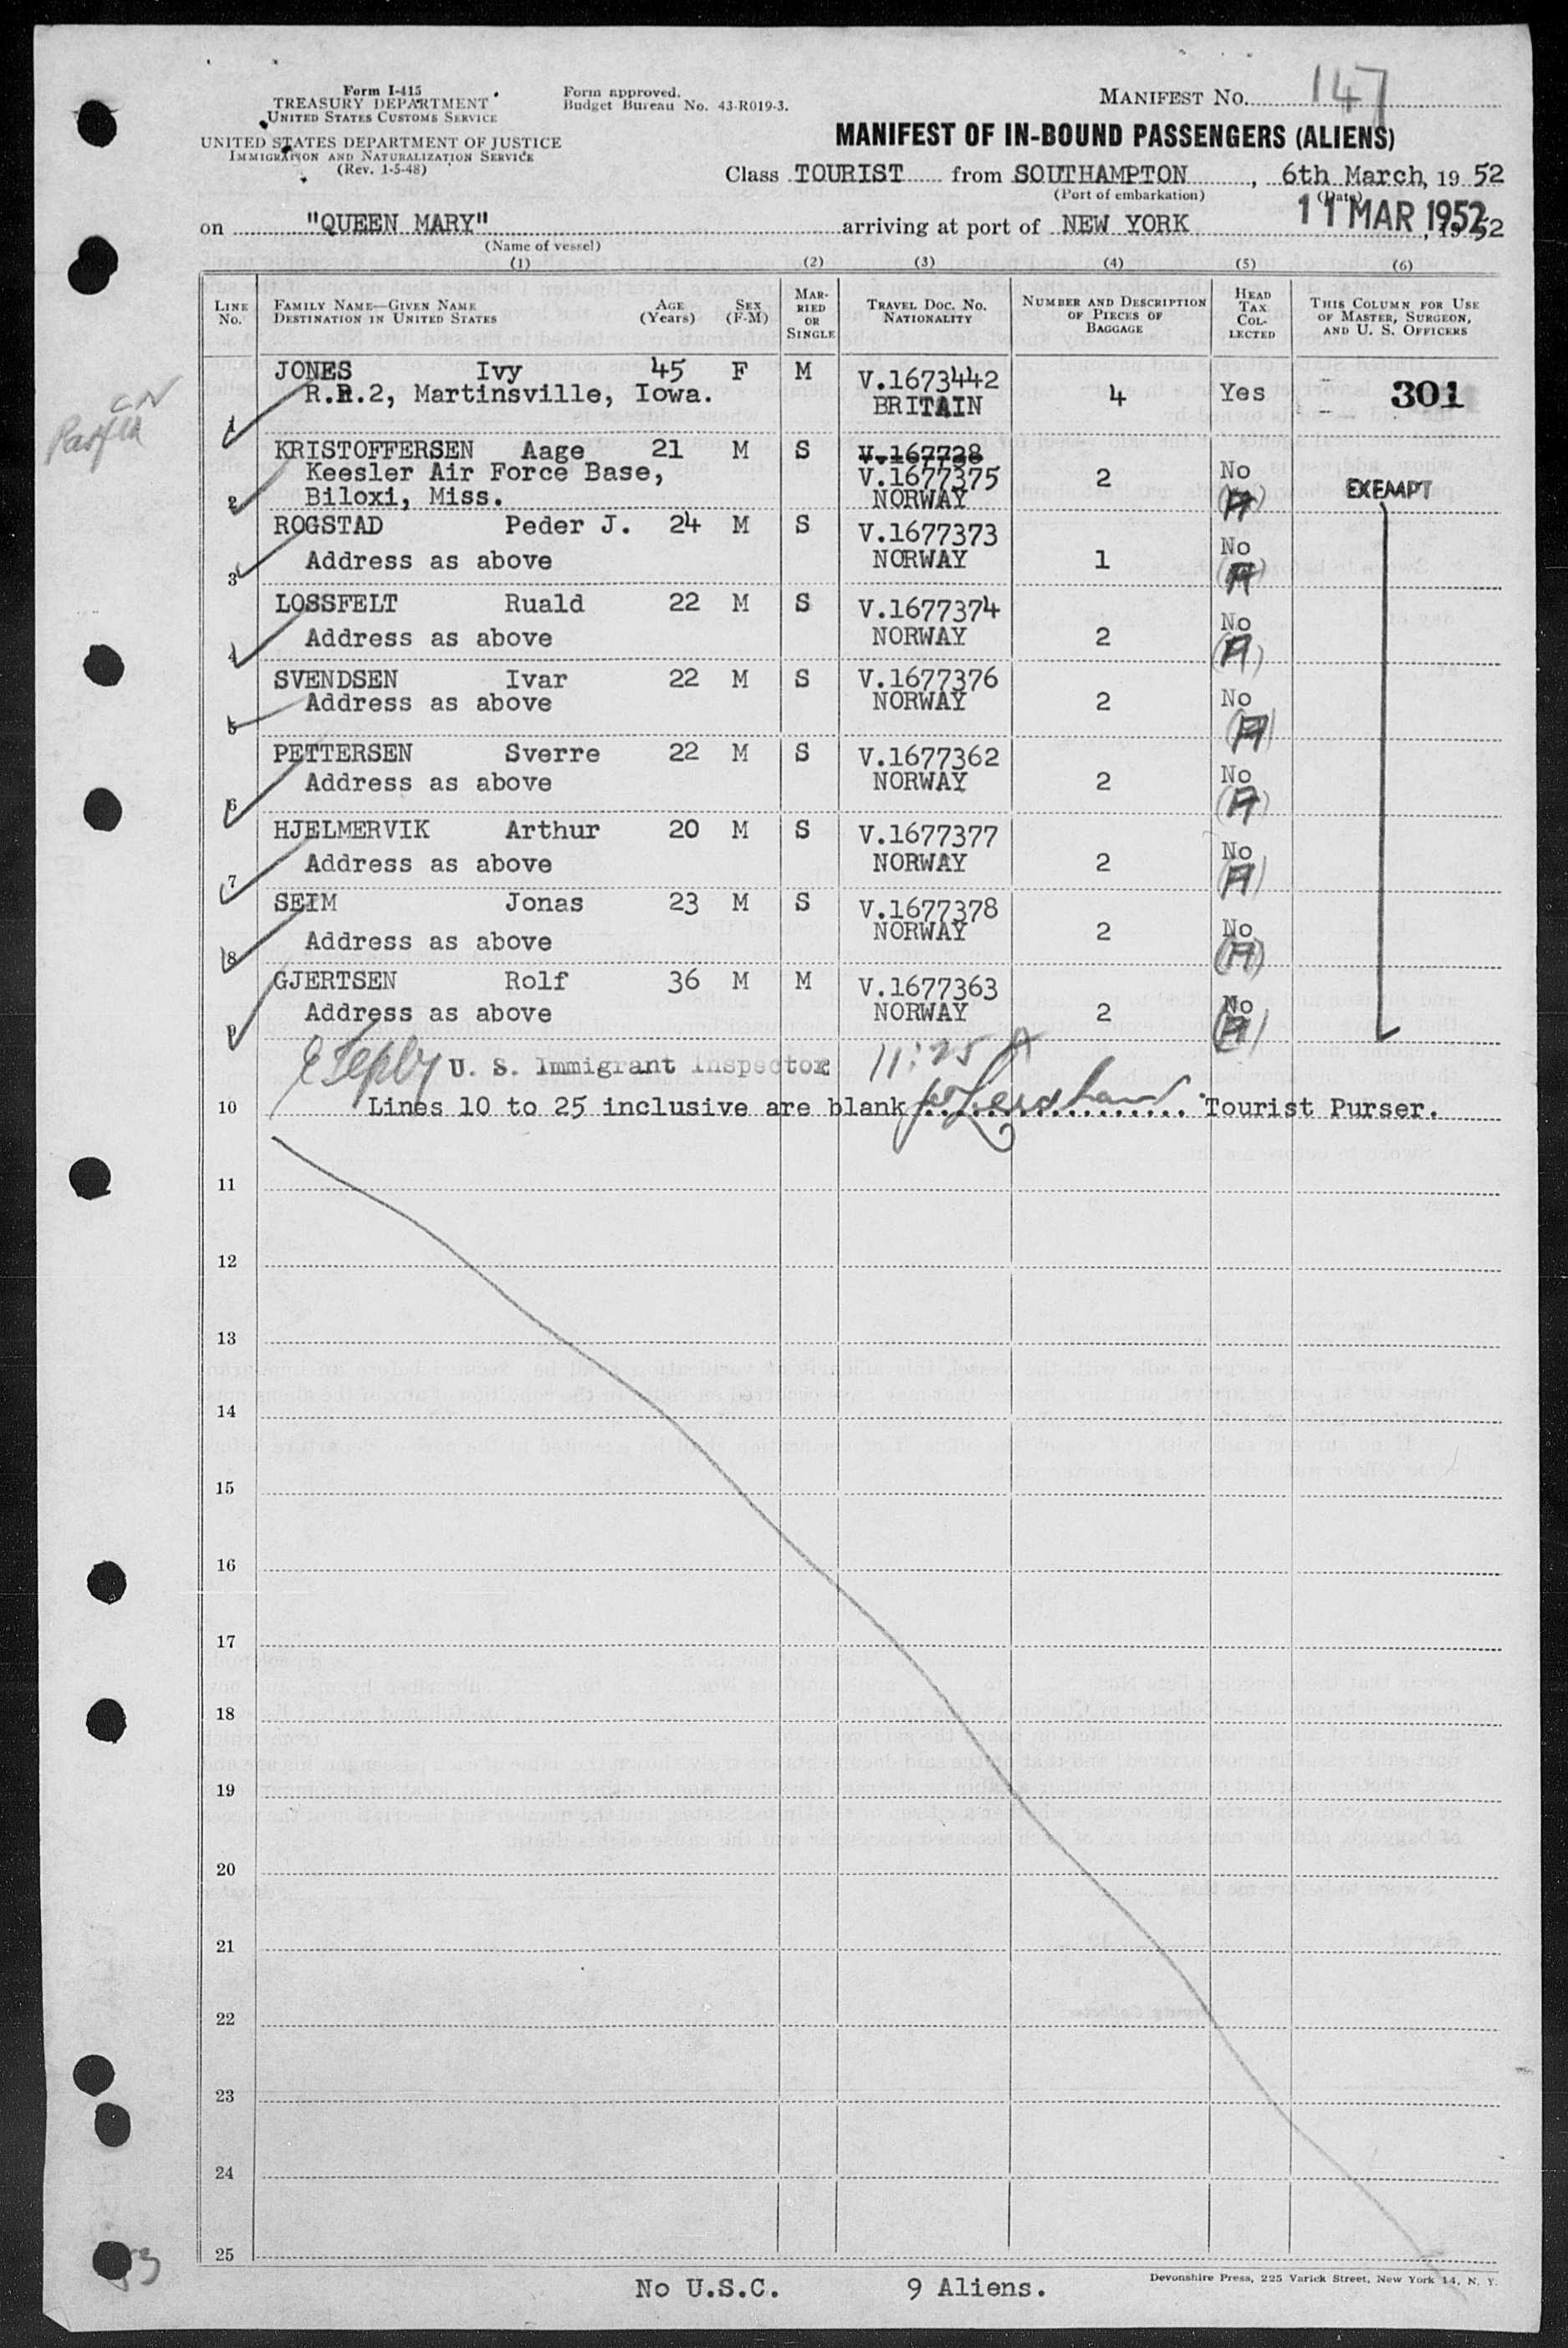 Form I-415
TREASURY DEPARTMENT
UNITED STATES CUSTOMS SERVICE
UNITED STATES DEPARTMENT OF JUSTICE
IMMIGRATION AND NATURALIZATION SERVICE
(Rev. 1-5-48)
Form approved.
Budget Bureau No. 43-R019-3.
MANIFEST No. 147
MANIFEST OF IN-BOUND PASSENGERS (ALIENS)
Class TOURIST from SOUTHAMPTON, 6th March, 19 52
(Port of embarkation) (Date)
on "QUEEN MARY" arriving at port of NEW YORK 11 MAR 1952, 19 52
(Name of vessel)
(1) (2) (3) (4) (5) (6)
LINE No. FAMILY NAME—GIVEN NAME DESTINATION IN UNITED STATES AGE (Years) SEX (F-M) MARRIED OR SINGLE TRAVEL DOC. No. NATIONALITY NUMBER AND DESCRIPTION OF PIECES OF BAGGAGE HEAD TAX COLLECTED THIS COLUMN FOR USE OF MASTER, SURGEON, AND U. S. OFFICERS
JONES Ivy 45 F M V.1673442
1 R.R.2, Martinsville, Iowa. BRITAIN 4 Yes 301
KRISTOFFERSEN Aage 21 M S V.167728
Keesler Air Force Base, V.1677375 2 No
2 Biloxi, Miss. NORWAY (A) EXEMPT
ROGSTAD Peder J. 24 M S V.1677373 No
3 Address as above NORWAY 1 (A)
LOSSFELT Ruald 22 M S V.1677374 No
4 Address as above NORWAY 2 (A)
SVENDSEN Ivar 22 M S V.1677376
5 Address as above NORWAY 2 No (A)
PETTERSEN Sverre 22 M S V.1677362
6 Address as above NORWAY 2 No (A)
HJELMERVIK Arthur 20 M S V.1677377
7 Address as above NORWAY 2 No (A)
SEIM Jonas 23 M S V.1677378
8 Address as above NORWAY 2 No (A)
GJERTSEN Rolf 36 M M V.1677363
9 Address as above NORWAY 2 No (A)
U. S. Immigrant Inspector 11:25 A
10 Lines 10 to 25 inclusive are blank .................. Tourist Purser.
11
12
13
14
15
16
17
18
19
20
21
22
23
24
25
No U.S.C. 9 Aliens.
Devonshire Press, 225 Varick Street, New York 14, N. Y.